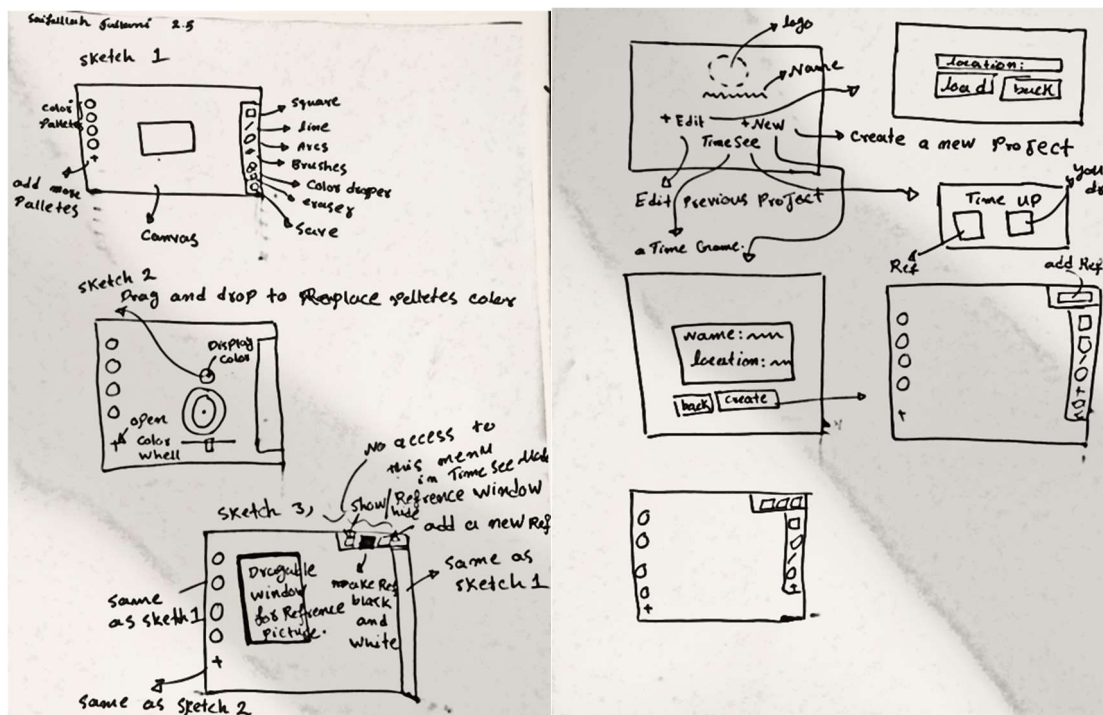 2.5
Sketch 1
Color
Palletes
add more
Palletes
Canvas
Square
line
Arcs
Brushes
Color draper
eraser
Save
Sketch 2
Drag and drop to Replace Pelletes color
Display
Color
open
Color
Whell
Sketch 3,
No access to
this menu
in Time See Mode
Show/
hide
Refrence Window
add a new Ref
Dragable
window
for Refrence
Picture.
make Ref
black
and
White
same as
sketch 1
same
as sketh 1
same as sketch 2
logo
Name
+ Edit
+ New
Time See
Create a new Project
Edit Previous Project
a Time Game.
location:
load
back
Time UP
Ref
You
dr
add Ref
Name:
location:
back
create